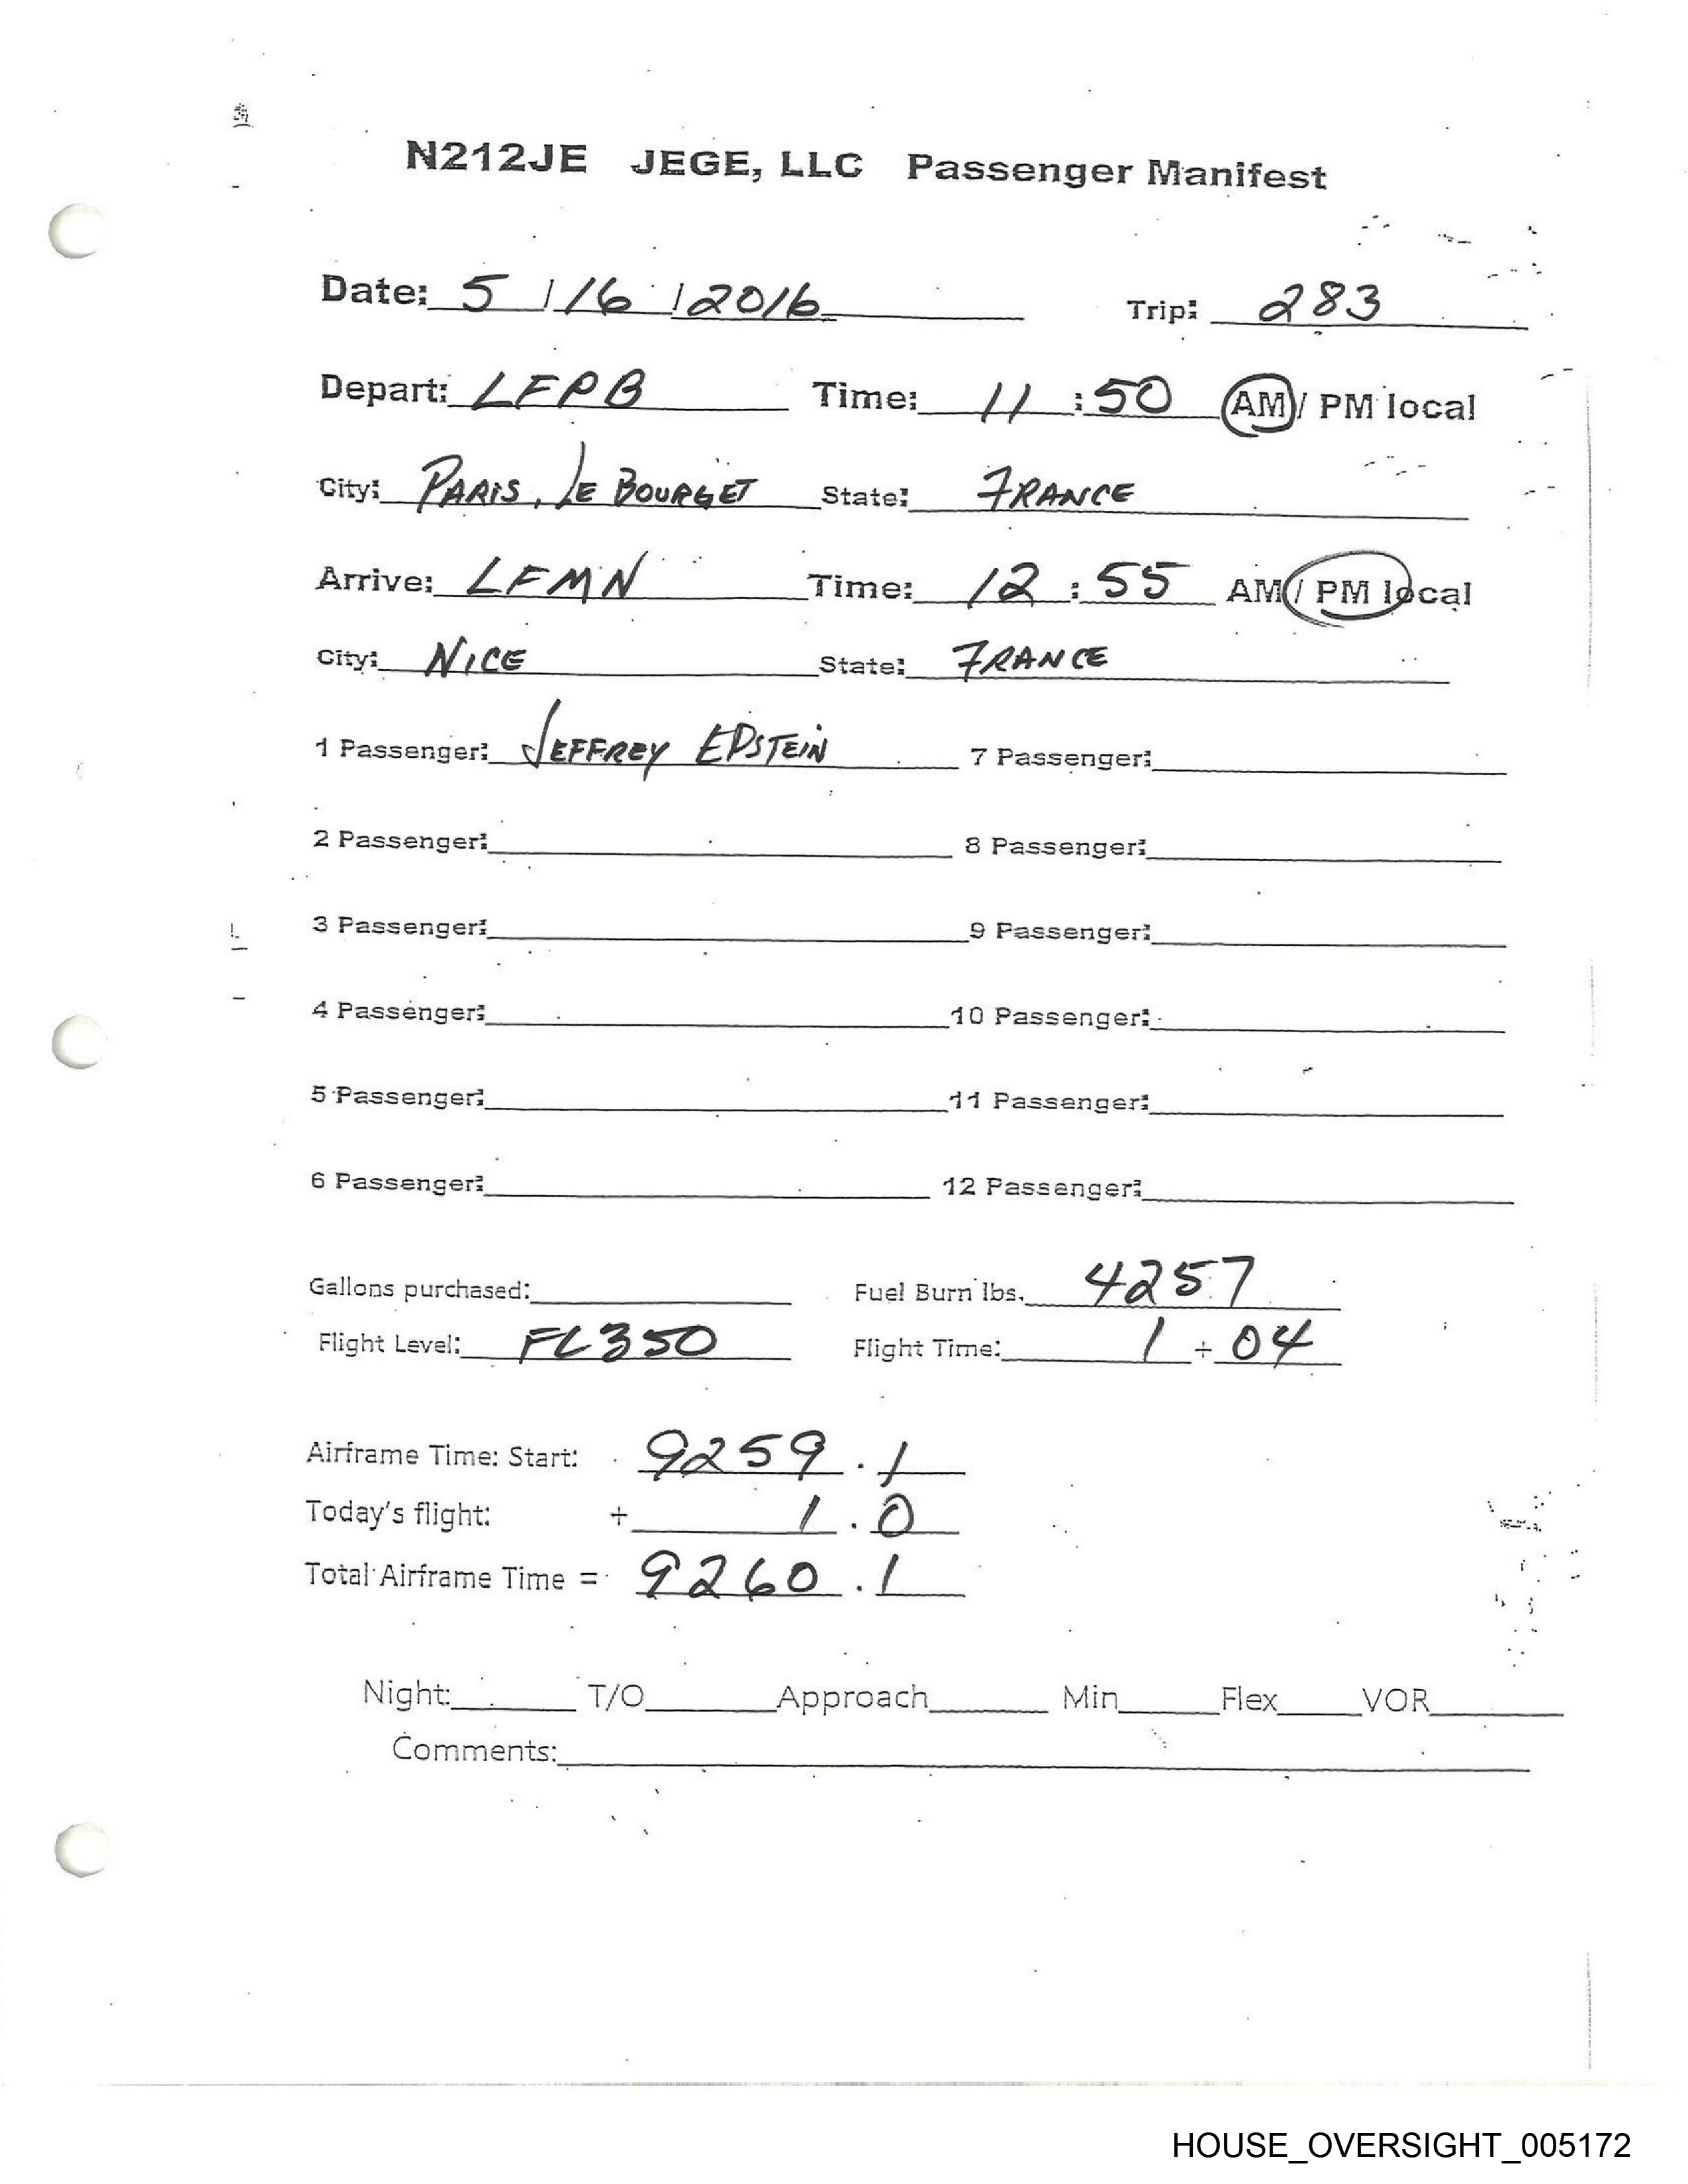 N212JE JEGE, LLC Passenger Manifest
Date: 5 / 16 / 2016 Trip: 283
Depart: LFPB Time: 11 : 50 AM / PM local
City: PARIS, LE BOURGET State: FRANCE
Arrive: LFMN Time: 12 : 55 AM / PM local
City: NICE State: FRANCE
1 Passenger: JEFFREY EPSTEIN 7 Passenger:
2 Passenger: 8 Passenger:
3 Passenger: 9 Passenger:
4 Passenger: 10 Passenger:
5 Passenger: 11 Passenger:
6 Passenger: 12 Passenger:
Gallons purchased: Fuel Burn lbs. 4257
Flight Level: FL350 Flight Time: 1 + 04
Airframe Time: Start: 9259 . 1
Today's flight: + 1 . 0
Total Airframe Time = 9260 . 1
Night: T/O Approach Min Flex VOR
Comments:
HOUSE_OVERSIGHT_005172